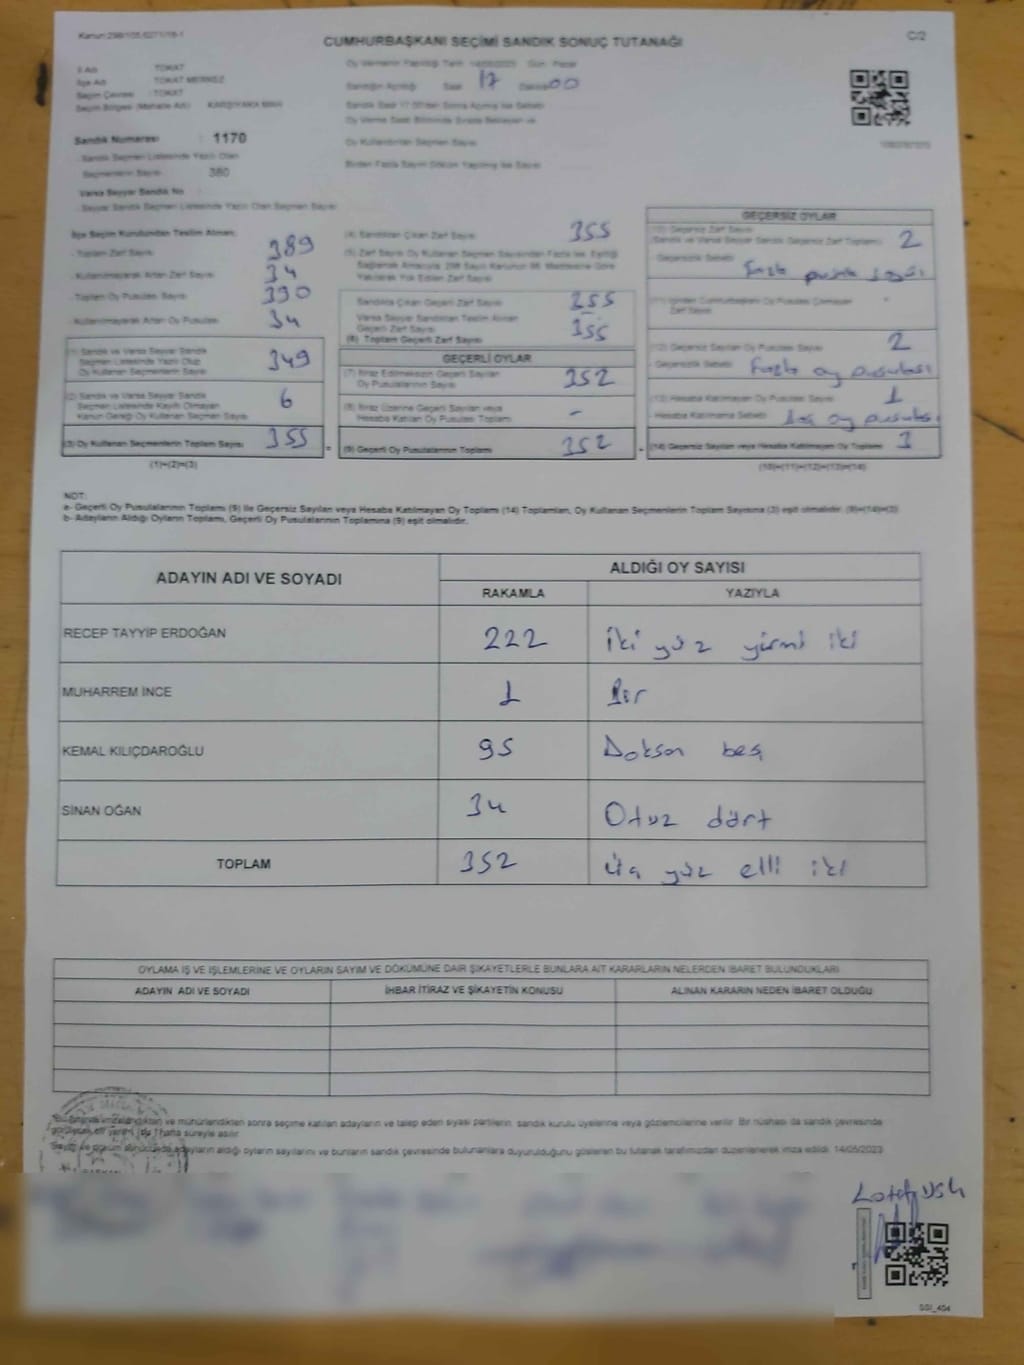 Kanun:298/105,6271/16-1
CUMHURBAŞKANI SEÇİMİ SANDIK SONUÇ TUTANAĞI
C/2
İl Adı : TOKAT
İlçe Adı : TOKAT MERKEZ
Seçim Çevresi : TOKAT
Seçim Bölgesi (Mahalle Adı) : KARŞIYAKA MAH.
Oy Vermenin Yapıldığı Tarih : 14/05/2023 Gün : Pazar
Sandığın Açıldığı Saat 17 Dakika 00
Sandık Saat 17.00'den Sonra Açılmış İse Sebebi
Oy Verme Saati Bitiminde Sırada Bekleyen ve
Oy Kullandırılan Seçmen Sayısı
Birden Fazla Sayım Döküm Yapılmış İse Sayısı
Sandık Numarası : 1170
- Sandık Seçmen Listesinde Yazılı Olan
Seçmenlerin Sayısı : 380
Varsa Seyyar Sandık No :
- Seyyar Sandık Seçmen Listesinde Yazılı Olan Seçmen Sayısı
İlçe Seçim Kurulundan Teslim Alınan:
- Toplam Zarf Sayısı 389
- Kullanılmayarak Artan Zarf Sayısı 34
- Toplam Oy Pusulası Sayısı 390
- Kullanılmayarak Artan Oy Pusulası 34
(1) Sandık ve Varsa Seyyar Sandık
Seçmen Listesinde Yazılı Olup
Oy Kullanan Seçmenlerin Sayısı 349
(2) Sandık ve Varsa Seyyar Sandık
Seçmen Listesinde Kayıtlı Olmayan
Kanun Gereği Oy Kullanan Seçmen Sayısı 6
(3) Oy Kullanan Seçmenlerin Toplam Sayısı 355
(1)+(2)=(3)
(4) Sandıktan Çıkan Zarf Sayısı 355
(5) Zarf Sayısı Oy Kullanan Seçmen Sayısından Fazla İse, Eşitliği
Sağlamak Amacıyla, 298 Sayılı Kanunun 98. Maddesine Göre
Yakılarak Yok Edilen Zarf Sayısı
Sandıkta Çıkan Geçerli Zarf Sayısı 255
Varsa Seyyar Sandıktan Teslim Alınan
Geçerli Zarf Sayısı
(6) Toplam Geçerli Zarf Sayısı 355
GEÇERLİ OYLAR
(7) İtiraz Edilmeksizin Geçerli Sayılan
Oy Pusulalarının Sayısı 352
(8) İtiraz Üzerine Geçerli Sayılan veya
Hesaba Katılan Oy Pusulası Toplamı -
(9) Geçerli Oy Pusulalarının Toplamı 352
GEÇERSİZ OYLAR
(10) Geçersiz Zarf Sayısı
(Sandık ve Varsa Seyyar Sandık Geçersiz Zarf Toplamı) 2
- Geçersizlik Sebebi fazla pusula
Zarf Sayısı
(12) Geçersiz Sayılan Oy Pusulası Sayısı 2
- Geçersizlik Sebebi fazla oy pusulası
(13) Hesaba Katılmayan Oy Pusulası Sayısı 1
- Hesaba Katılmama Sebebi boş oy pusulası
(14) Geçersiz Sayılan veya Hesaba Katılmayan Oy Toplamı 3
(10)+(11)+(12)+(13)=(14)
NOT:
a- Geçerli Oy Pusulalarının Toplamı (9) ile Geçersiz Sayılan veya Hesaba Katılmayan Oy Toplamı (14) Toplamları, Oy Kullanan Seçmenlerin Toplam Sayısına (3) eşit olmalıdır. (9)+(14)=(3)
b- Adayların Aldığı Oyların Toplamı, Geçerli Oy Pusulalarının Toplamına (9) eşit olmalıdır.
ADAYIN ADI VE SOYADI
ALDIĞI OY SAYISI
RAKAMLA YAZIYLA
RECEP TAYYİP ERDOĞAN 222 iki yüz yirmi iki
MUHARREM İNCE 1 Bir
KEMAL KILIÇDAROĞLU 95 Doksan beş
SİNAN OĞAN 34 Otuz dört
TOPLAM 352 üç yüz elli iki
OYLAMA İŞ VE İŞLEMLERİNE VE OYLARIN SAYIM VE DÖKÜMÜNE DAİR ŞİKAYETLERLE BUNLARA AİT KARARLARIN NELERDEN İBARET BULUNDUKLARI
ADAYIN ADI VE SOYADI İHBAR İTİRAZ VE ŞİKAYETİN KONUSU ALINAN KARARIN NEDEN İBARET OLDUĞU
ve mühürlendikten sonra seçime katılan adayların ve talep eden siyasi partilerin, sandık kurulu üyelerine veya gözlemcilerine verilir. Bir nüshası da sandık çevresinde
1 hafta süreyle asılır.
adayların aldığı oyların sayılarını ve bunların sandık çevresinde bulunanlara duyurulduğunu gösteren bu tutanak tarafımızdan düzenlenerek imza edildi. 14/05/2023